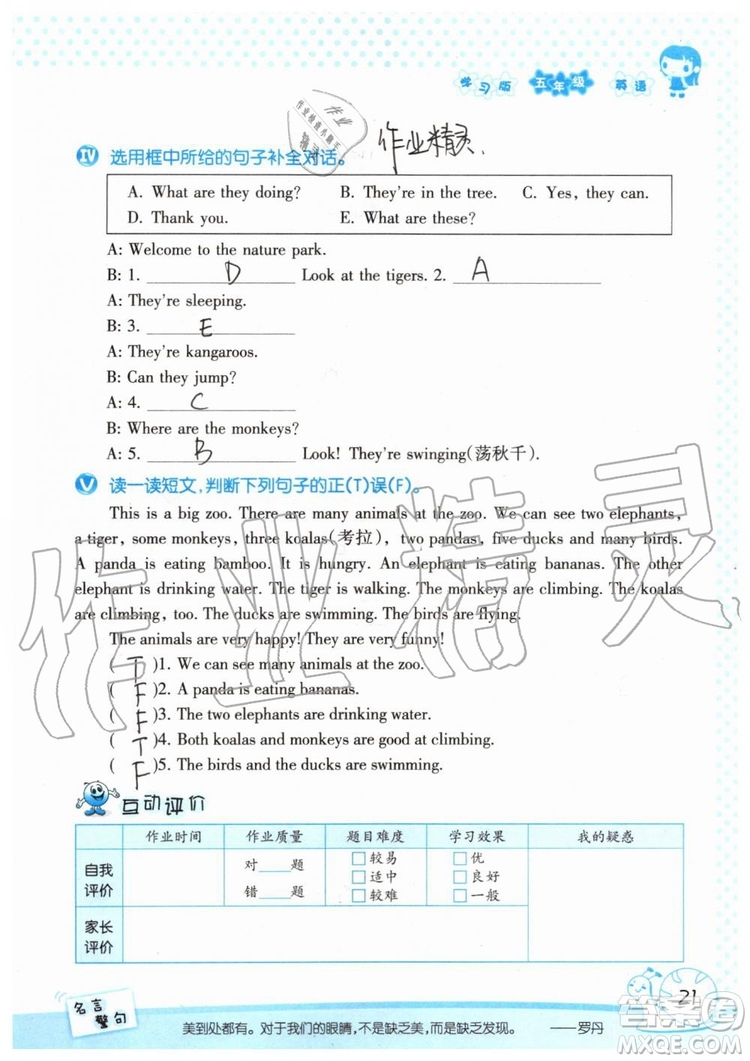 学习版 五年级 英语
作业精灵
IV 选用框中所给的句子补全对话。
A. What are they doing? B. They're in the tree. C. Yes, they can.
D. Thank you. E. What are these?
A: Welcome to the nature park.
B: 1. D Look at the tigers. 2. A
A: They're sleeping.
B: 3. E
A: They're kangaroos.
B: Can they jump?
A: 4. C
B: Where are the monkeys?
A: 5. B Look! They're swinging(荡秋千).
V 读一读短文,判断下列句子的正(T)误(F)。
This is a big zoo. There are many animals at the zoo. We can see two elephants,
a tiger, some monkeys, three koalas(考拉), two pandas, five ducks and many birds.
A panda is eating bamboo. It is hungry. An elephant is eating bananas. The other
elephant is drinking water. The tiger is walking. The monkeys are climbing. The koalas
are climbing, too. The ducks are swimming. The birds are flying.
The animals are very happy! They are very funny!
( T )1. We can see many animals at the zoo.
( F )2. A panda is eating bananas.
( F )3. The two elephants are drinking water.
( T )4. Both koalas and monkeys are good at climbing.
( F )5. The birds and the ducks are swimming.
作业精灵
互动评价
作业时间 作业质量 题目难度 学习效果 我的疑惑
自我评价 对___题 □较易 □优
□适中 □良好
错___题 □较难 □一般
家长评价
名言警句
美到处都有。对于我们的眼睛,不是缺乏美,而是缺乏发现。 ——罗丹
21
答案圈
MXQE.COM